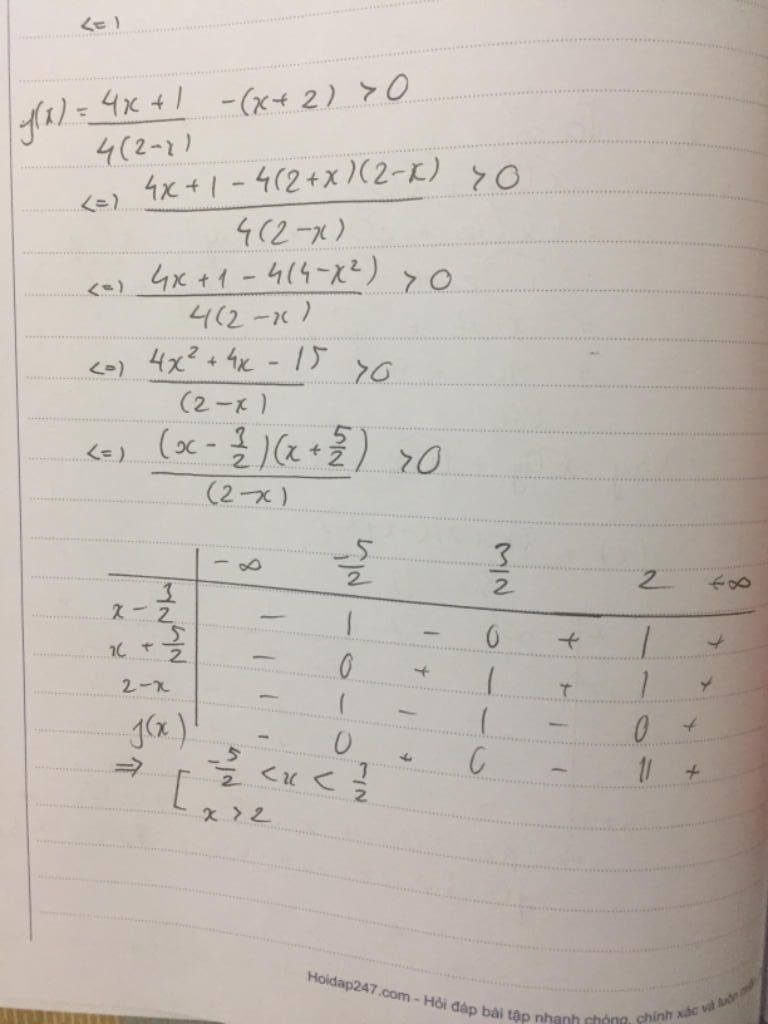 <=)
g(x) = \frac{4x + 1}{4(2-x)} -(x+2) > 0
<=) \frac{4x + 1 - 4(2+x)(2-x)}{4(2-x)} > 0
<=) \frac{4x + 1 - 4(4-x²)}{4(2-x)} > 0
<=) \frac{4x² + 4x - 15}{(2-x)} > 0
<=) \frac{(x - \frac{3}{2})(x + \frac{5}{2})}{(2-x)} > 0
-∞ \frac{-5}{2} \frac{3}{2} 2 +∞
x - \frac{3}{2} - | - 0 + | +
x + \frac{5}{2} - 0 + | + | +
2-x - | - | - 0 +
g(x) - 0 + 0 - || +
=> [ \frac{-5}{2} < x < \frac{3}{2}
x > 2
Hoidap247.com - Hỏi đáp bài tập nhanh chóng, chính xác và luôn